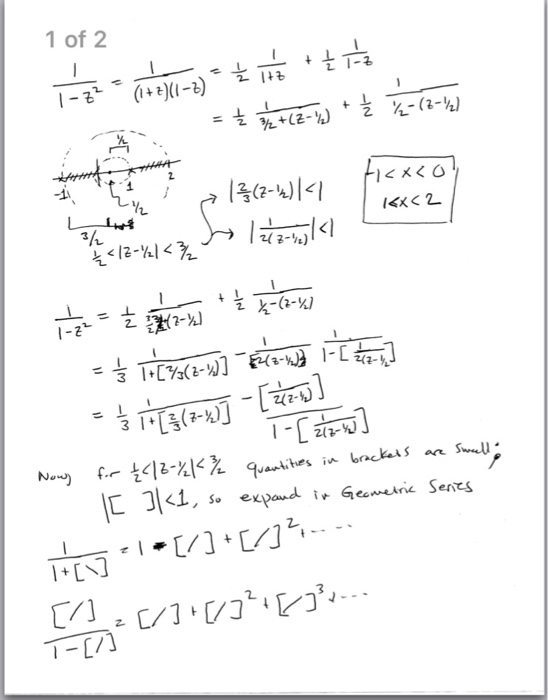 1 of 2
1/(1-z²) = 1/((1+z)(1-z)) = 1/2 1/(1+z) + 1/2 1/(1-z)
= 1/2 1/(3/2+(z-1/2)) + 1/2 1/(1/2-(z-1/2))
1/2
-1 1 2
1/2
3/2
1/2 < |z-1/2| < 3/2
|2/3(z-1/2)| < 1
|1/(2(z-1/2))| < 1
-1 < x < 0
1 < x < 2
1/(1-z²) = 1/2 1/(3/2+(z-1/2)) + 1/2 1/(1/2-(z-1/2))
= 1/3 1/(1+[2/3(z-1/2)]) - 1/(2(z-1/2)) 1/(1-[1/(2(z-1/2))])
= 1/3 1/(1+[2/3(z-1/2)]) - [1/(2(z-1/2))]/(1-[1/(2(z-1/2))])
Now, for 1/2<|z-1/2|<3/2 quantities in brackets are small;
|[ ]|<1, so expand in Geometric Series
1/(1+[\]) = 1 - [/] + [/]² + ....
[/]/(1-[/]) = [/] + [/]² + [/]³ + ...